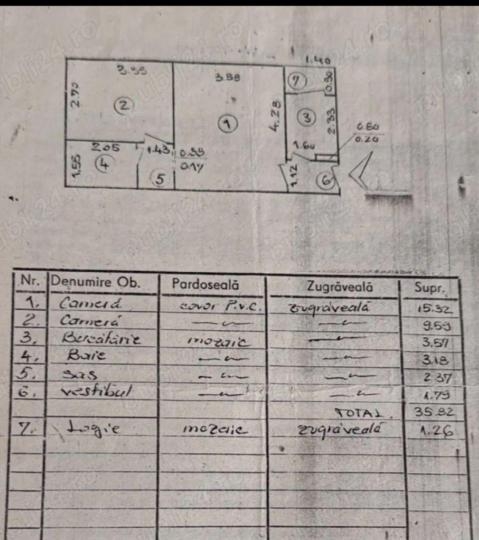 1.40
3.55
3.88
7
0.90
2.70
2
1
4.28
3
2.33
0.60
0.20
205
1.43
0.33
0.17
1.60
1.55
4
5
1.12
6
Nr. Denumire Ob. Pardoseală Zugrăveală Supr.
1. Cameră covor P.V.C. zugrăveală 15.32
2. Cameră —〃— —〃— 9.59
3. Bucătărie mozaic —〃— 3.57
4. Baie —〃— —〃— 3.18
5. sas —〃— —〃— 2.37
6. vestibul —〃— —〃— 1.79
TOTAL. 35.82
7. Logie mozaic zugrăveală 1.26